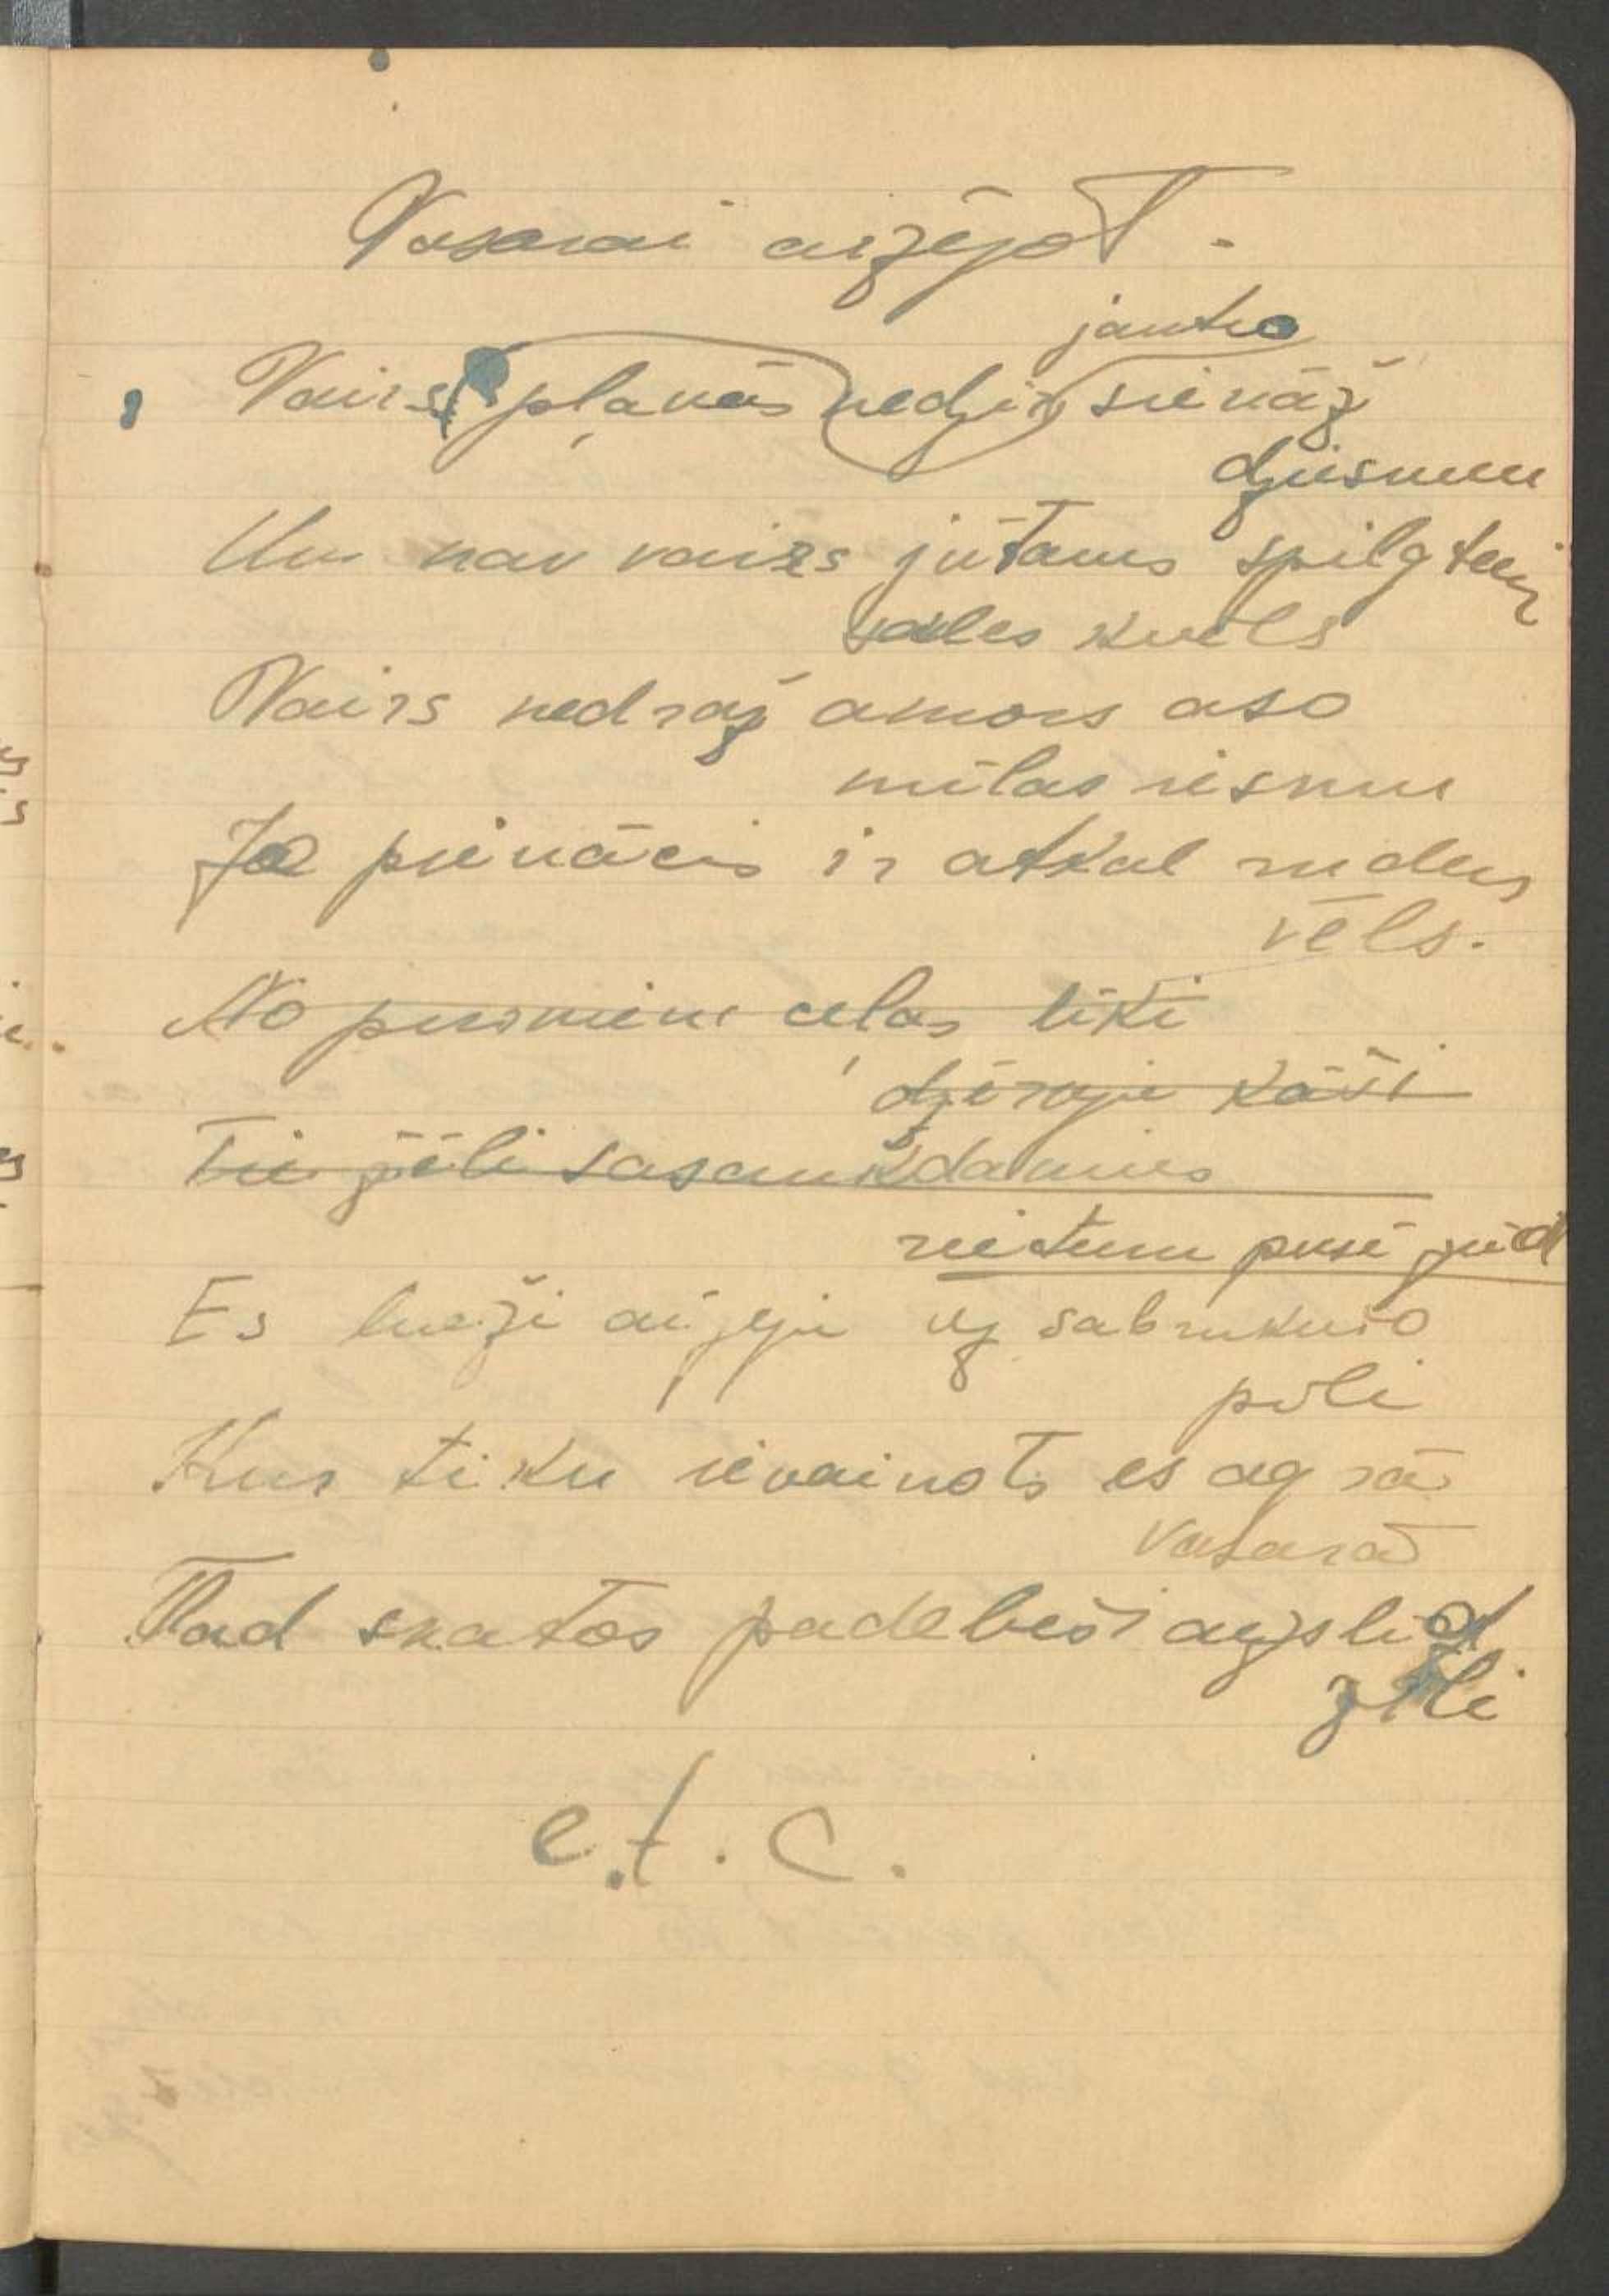 Vasarai aizejoT.
jautro
Vairs pļavās nedzir sienāž
dziesmu
Un nav vairs jūtams spilgtais
saules kvēls
Vairs nedraž amors aso
mīlas riesmu
Jo pienācis ir atkal rudens
vēls.
No purviem ceļas līki
dzērvju kāši
Tie žēli sasaukdamies
rietumu pusē zūd
Es lueži aizeju uz sabrukušo
pili
Kur tiku ievainots es agrā
vasarā
Tad skatos padebeši aizslīd
zili
e.t.c.